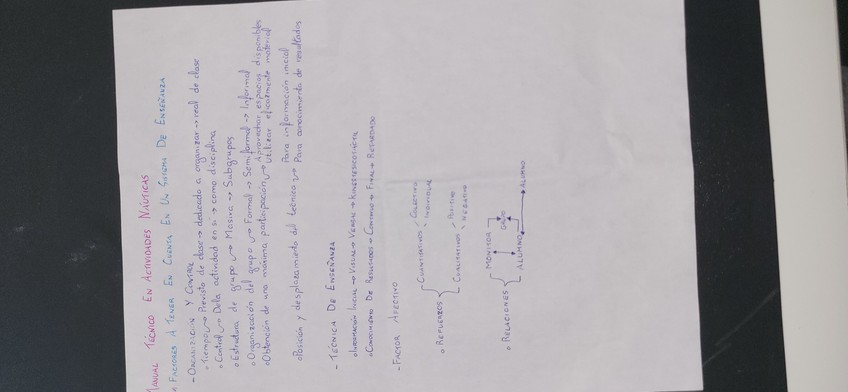 MANUAL TÉCNICO EN ACTIVIDADES NÁUTICAS
FACTORES A TENER EN CUENTA EN UN SISTEMA DE ENSEÑANZA
- ORGANIZACIÓN Y CONTROL
o Tiempo → Previsto de clase → dedicado a organizar → real de clase
o Control → De la actividad en sí → como disciplina
o Estructura de grupo → Masiva → Subgrupos
o Organización del grupo → Formal → Semiformal → Informal
Aprovechar espacios disponibles
o Obtención de una máxima participación → Utilizar eficazmente material
Para información inicial
o Posición y desplazamiento del técnico → Para conocimiento de resultados
- TÉCNICA DE ENSEÑANZA
o INFORMACIÓN INICIAL → VISUAL → VERBAL → KINESTÉSICO TÁCTIL
o CONOCIMIENTO DE RESULTADOS → CONTINUO → FINAL → RETARDADO
- FACTOR AFECTIVO
o REFUERZOS
CUANTITATIVOS
COLECTIVO
INDIVIDUAL
CUALITATIVOS
POSITIVO
NEGATIVO
o RELACIONES
MONITOR
GRUPO
ALUMNO
ALUMNO